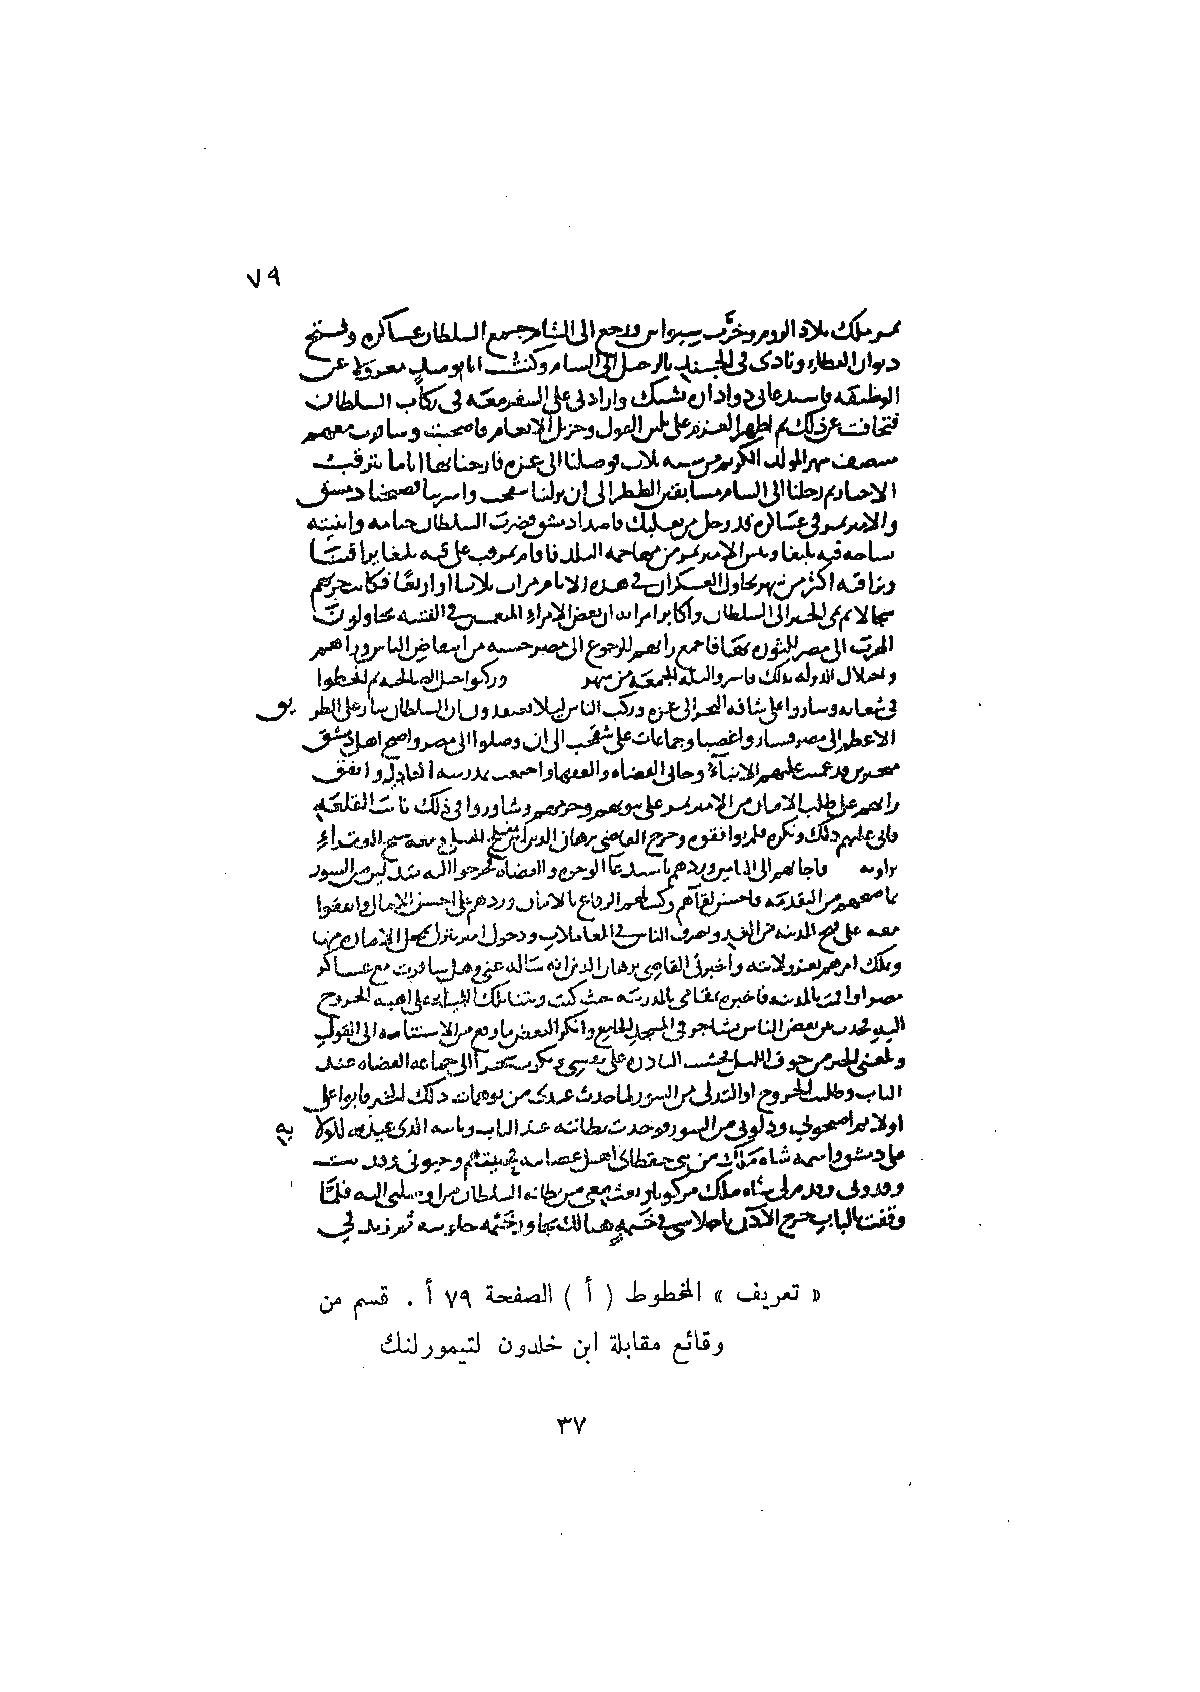 ٧٩
تمر ملك بلاد الروم وخرّب سيواس ورجع الى الشام فجمع السلطان عساكره وفتح
ديوان العطاء ونادى فى الجند بالرحيل الى الشام وكنت انا يوميذ معزولا عن
الوظيفه فاستدعانى دواداره يشبك وارادنى على السفر معه فى ركاب السلطان
فتجافيت عن ذلك ثم اظهر العزم على بلين القول وجزيل الانعام فاصخيت وسافرت معهم
منتصف شهر المولد الكريم من سنه ثلاث فوصلنا الى غزه فارحنا بها اياما نترقب
الاخبار ثم رحلنا الى الشام مسابقين الططر الى ان نزلنا شقحب واسرينا فصبحنا دمشق
والامير تمر فى عساكره قد رحل من بعلبك قاصدا دمشق فضرب السلطان خيامه وابنيته
بساحه قبه يلبغا ويئس الامير تمر من مهاجمه البلد فاقام بمرقب على قبه يلبغا يراقبنا
ونراقبه اكثر من شهر تجاول العسكران فى هذه الايام مرات ثلاثا او اربعا فكانت حربهم
سجالا ثم نمى الخبر الى السلطان واكابر امرائه ان بعض الامراء المنغمسين فى الفتنه يحاولون
الهرب الى مصر للثوره بها فاجمع رايهم للرجوع الى مصر خشيه من انتقاض الناس وراهم
واختلال الدوله بذلك فاسروا ليله الجمعه من شهر وركبوا جبل الصالحيه ثم انحطوا
فى شعابه وساروا على شافه البحر الى غزه وركب الناس ليلا يعتقدون ان السلطان سار على الطريق
الاعظم الى مصر فساروا عصبا وجماعات على شقحب الى ان وصلوا الى مصر واصبح اهل دمشق
متحيرين قد عميت عليهم الانباء وجانى القضاه والفقها واجتمعت بمدرسه العادليه واتفق
رايهم على طلب الامان من الامير تمر على بيوتهم وحرمهم وشاوروا فى ذلك نايب القلعه
فابى عليهم ذلك ونكره فلم يوافقوه وخرج القاضى برهان الدين بن مفلح الحنبلى ومعه شيخ الفقراء
بزاويه فاجابهم الى التامين وردهم باستدعا الوجوه والقضاه فخرجوا اليه متدلين من السور
بما صحبهم من التقدمه فاحسن لقاهم وكتب لهم الرقاع بالامان وردهم على احسن الامال واتفقوا
معه على فتح المدينه من الغد وتصرف الناس فى المعاملات ودخول امير ينزل بمحل الاماره منها
ويملك امرهم بعز ولايته واخبرنى القاضى برهان الدين انه ساله عنى وهل سافرت مع عساكر
مصر او اقمت بالمدينه فاخبره بمقامى بالمدرسه حيث كنت وبتنا تلك الليله على اهبه الخروج
اليه فحدث بين بعض الناس تشاجر فى المسجد الجامع وانكر البعض ما وقع من الاستنامه الى القول
وبلغنى الخبر من جوف الليل فخشيت البادره على نفسى وبكرت سحرا الى جماعه القضاه عند
الباب وطلبت الخروج او التدلى من السور لما حدث عندى من توهمات ذلك الخبر فابوا على
اولا ثم اصخوا لى ودلونى من السور فوجدت بطانته عند الباب ونايبه الذى عينه للولايه
على دمشق واسمه شاه ملك من بنى جقطاى اهل عصابته فحييتهم وحيونى وفديت
وفدونى وقدم لى شاه ملك مركوبا وبعث معى من بطانه السلطان من اوصلنى اليه فلما
وقفت بالباب خرج الاذن باجلاسى فى خيمه هنالك تجاور خيمه جلوسه ثم زيد فى
« تعريف » المخطوط ( أ ) الصفحة ٧٩ أ . قسم من
وقائع مقابلة ابن خلدون لتيمورلنك
٣٧